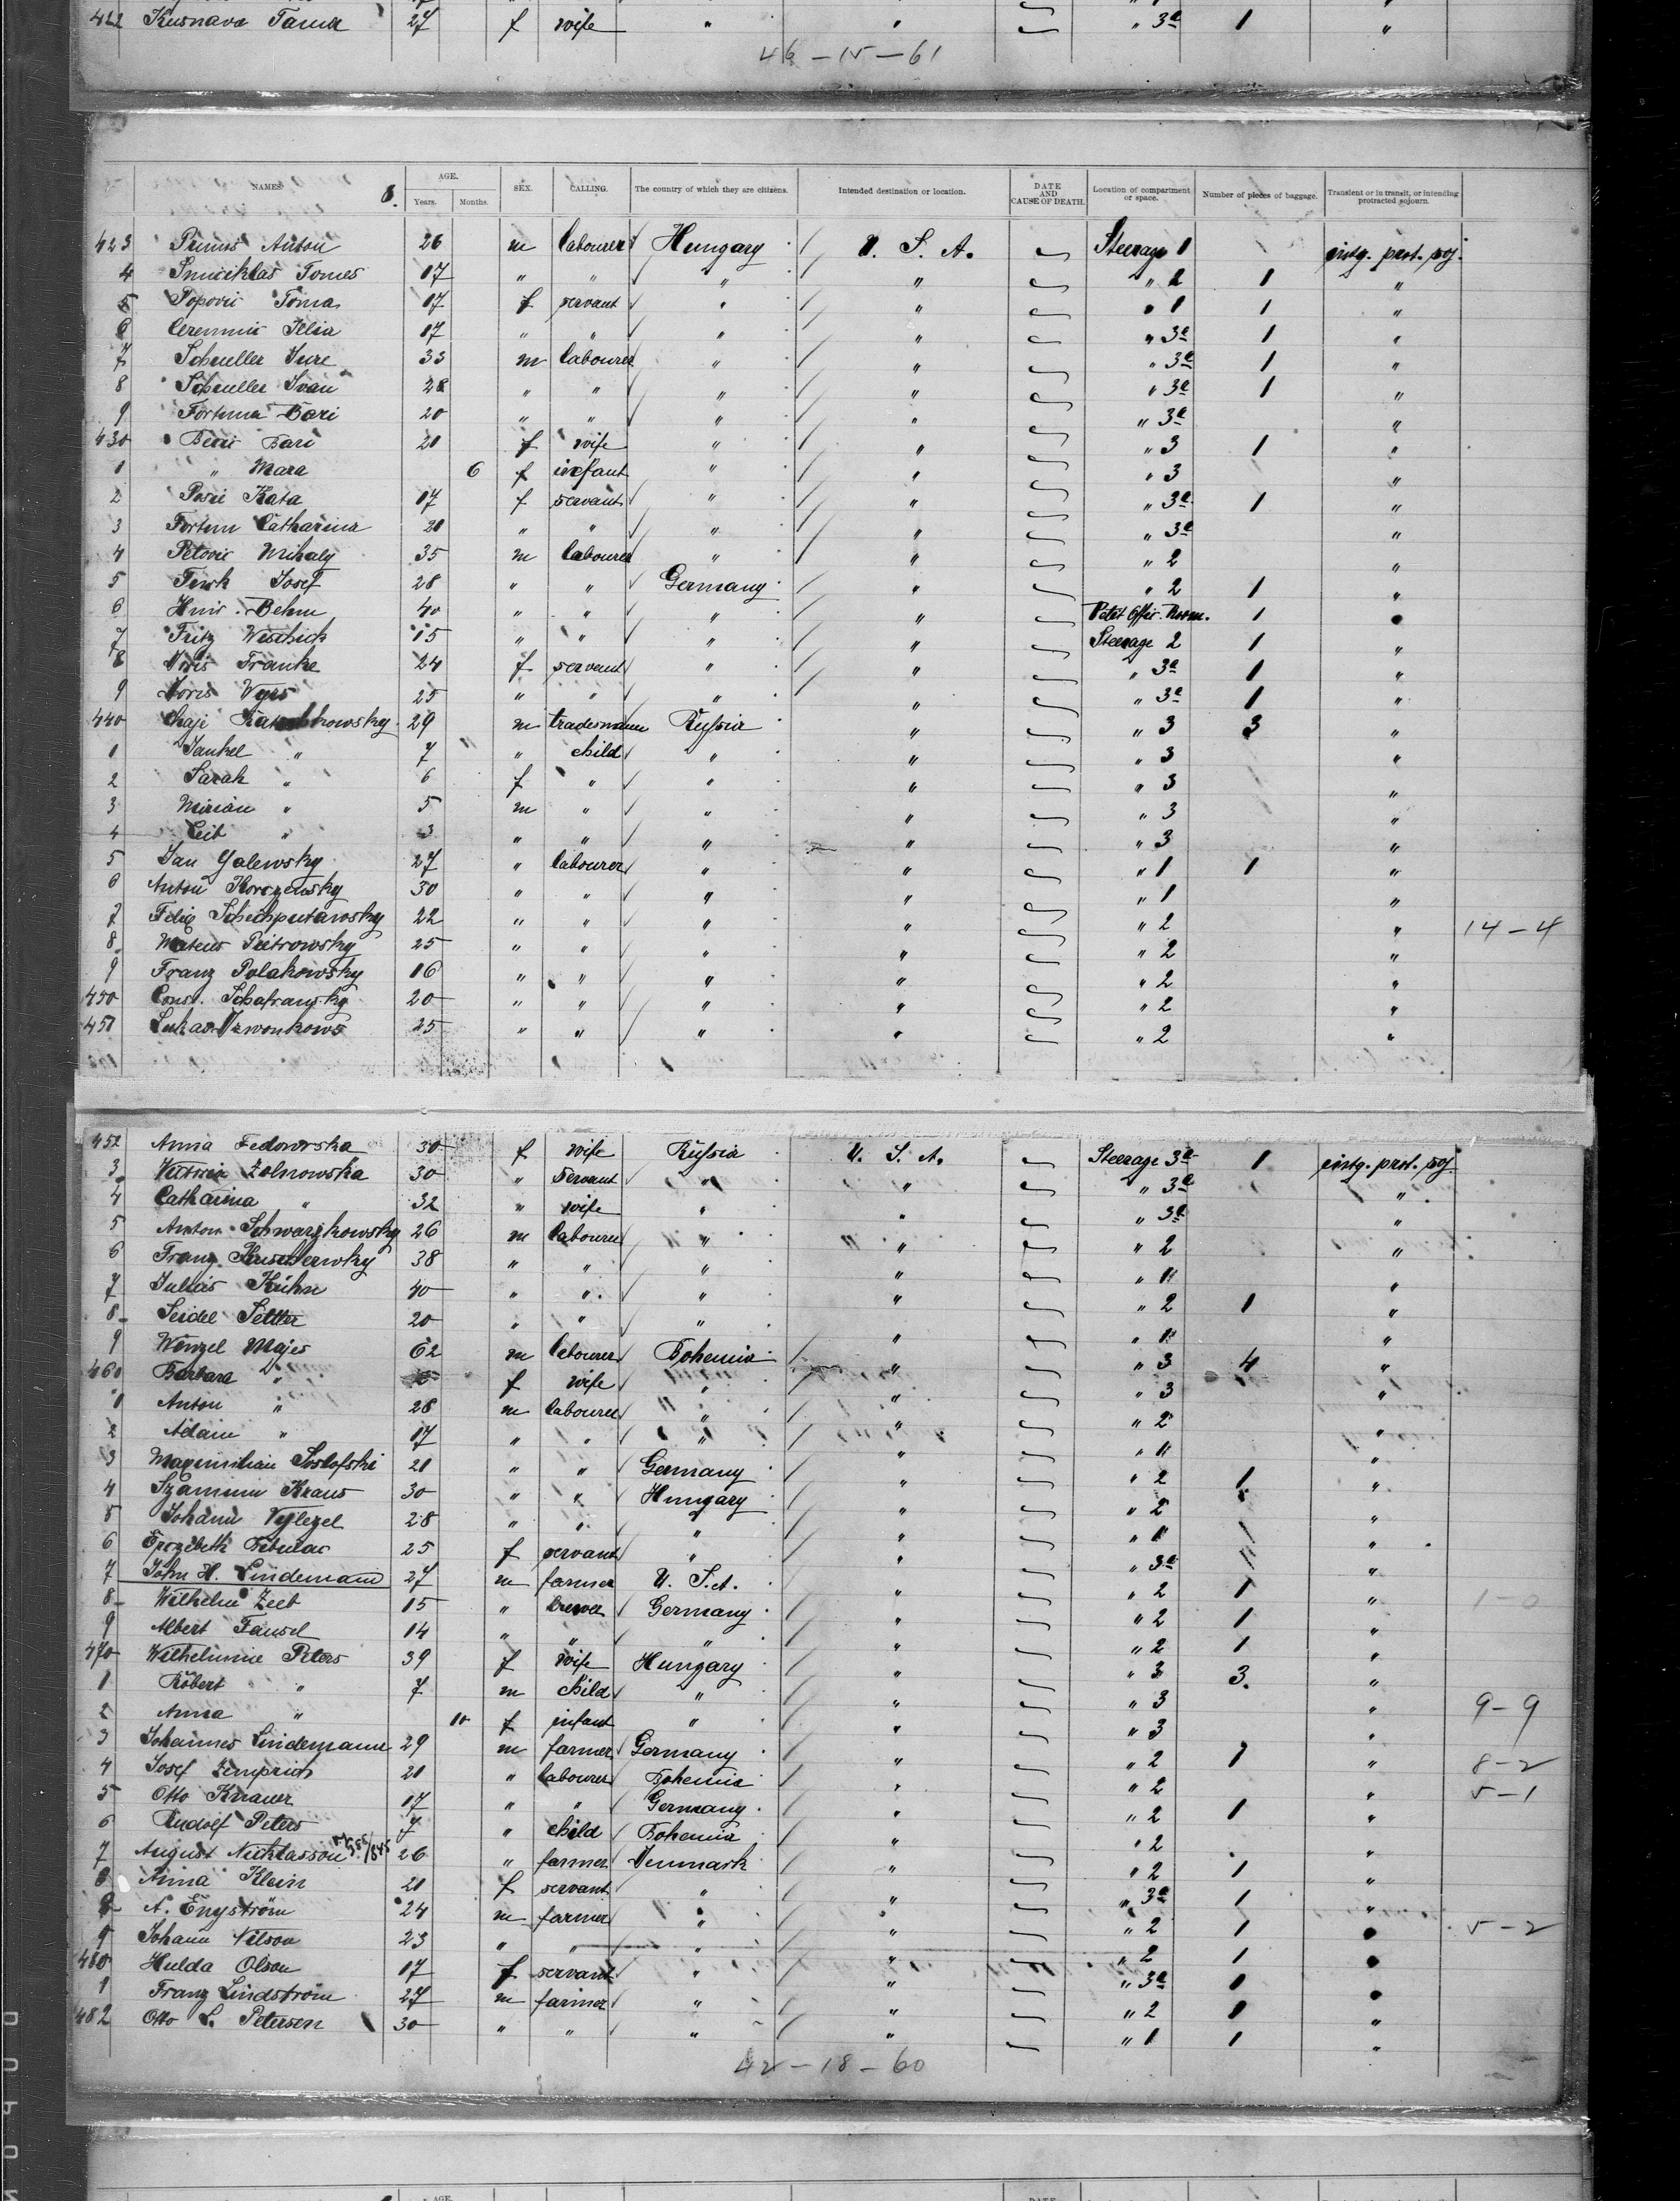 422 Kusnava Tama 27 f wife " " " 3a 1 "
46-15-61
NAMES 8. AGE. Years. Months. SEX. CALLING. The country of which they are citizens. Intended destination or location. DATE AND CAUSE OF DEATH. Location of compartment or space. Number of pieces of baggage. Transient or in transit, or intending protracted sojourn.
423 Anton 26 m labourer Hungary U. S. A. Steerage 1 intg. prot. soj.
4 Tomes 17 " " " " " 2 1 "
5 Popovic Toma 17 f servant " " " 1 1 "
6 Ceremnic Illia 17 " " " " " 3a 1 "
7 Schneller Jure 33 m labourer " " " 3a 1 "
8 Schneller Ivan 28 " " " " " 3a 1 "
9 Fortuna Bari 20 " " " " " 3a "
430 Bari 20 f wife " " " 3 1 "
1 " Mara 6 f infant " " " 3 "
2 Kata 17 f servant " " " 3a 1 "
3 Fortun Catharina 20 " " " " " 3a "
4 Petovic Mihaly 35 m labourer " " " 2 "
5 Josef 28 " " Germany " " 2 1 "
6 Behm 40 " " " " Petit Offic. Room. 1 "
7 Fritz 15 " " " " Steerage 2 1 "
8 Franke 24 f servant " " " 3a 1 "
9 Doris 25 " " " " " 3a 1 "
440 Chaje 29 m tradesmann Russia " " 3 3 "
1 Jankel " 7 " child " " " 3 "
2 Sarah " 6 f " " " " 3 "
3 Mirian " 5 m " " " " 3 "
4 Leib " 3 " " " " " 3 "
5 Jan Galewsky 27 " labourer " " " 1 1 "
6 Anton Korozensky 30 " " " " " 1 "
7 Felix 22 " " " " " 2 " 14-4
8 Mateus Pietrowsky 25 " " " " " 2 "
9 Franz Polakowsky 16 " " " " " 2 "
450 Const. Schafransky 20 " " " " " 2 "
451 Lukas 25 " " " " " 2 "
452 Anna Fedowska 30 f wife Russia U. S. A. Steerage 3a 1 intg. prot. soj.
3 Zolnowska 30 " servant " " " 3a "
4 Catharina " 32 " wife " " " 3a "
5 Anton Schwarzkowsky 26 m labourer " " " 2 "
6 Franz 38 " " " " " 1 "
7 Julius Kühn 40 " " " " " 2 1 "
8 Seidel Settler 20 " " " " " 1 "
9 Wenzel Majes 62 m labourer Bohemia " " 3 4 "
460 Barbara " f wife " " " 3 "
1 Anton " 28 m labourer " " " 2 "
2 Adam " 17 " " " " " 1 "
3 Maximilian Soslofski 20 " " Germany " " 2 1 "
4 Kraus 30 " " Hungary " " 2 "
5 Johann Vylezel 28 " " " " " 1 "
6 25 f servant " " " 3a "
7 John H. Lindemann 27 m farmer U. S. A. " " 2 1 "
8 Wilhelm Zeeb 15 " brewer Germany " " 2 1 " 1-0
9 Albert Fausel 14 " " " " " 2 1 "
470 Wilhelmine Peters 39 f wife Hungary " " 3 3. "
1 Robert " 7 m child " " " 3 "
2 Anna " 10 f infant " " " 3 " 9-9
3 Johannes Lindemann 29 m farmer Germany " " 2 1 "
4 Josef Zemprich 20 " labourer Bohemia " " 2 " 8-2
5 Otto Krauer 17 " " Germany " " 2 1 " 5-1
6 Rudolf Peters 7 " child Bohemia " " 2 "
7 August Nicklasson 26 " farmer Denmark " " 2 1 "
8 Anna Klein 20 f servant " " " 3a 1 "
8 A. Engström 24 m farmer " " " 2 1 "
9 Johann Nilson 23 " " " " " 2 1 " 5-2
480 Hulda Olson 17 f servant " " " 3a 1 "
1 Franz Lindström 27 m farmer " " " 2 1 "
482 Otto L. Petersen 30 " " " " " 1 1 "
42-18-60
AGE. DATE